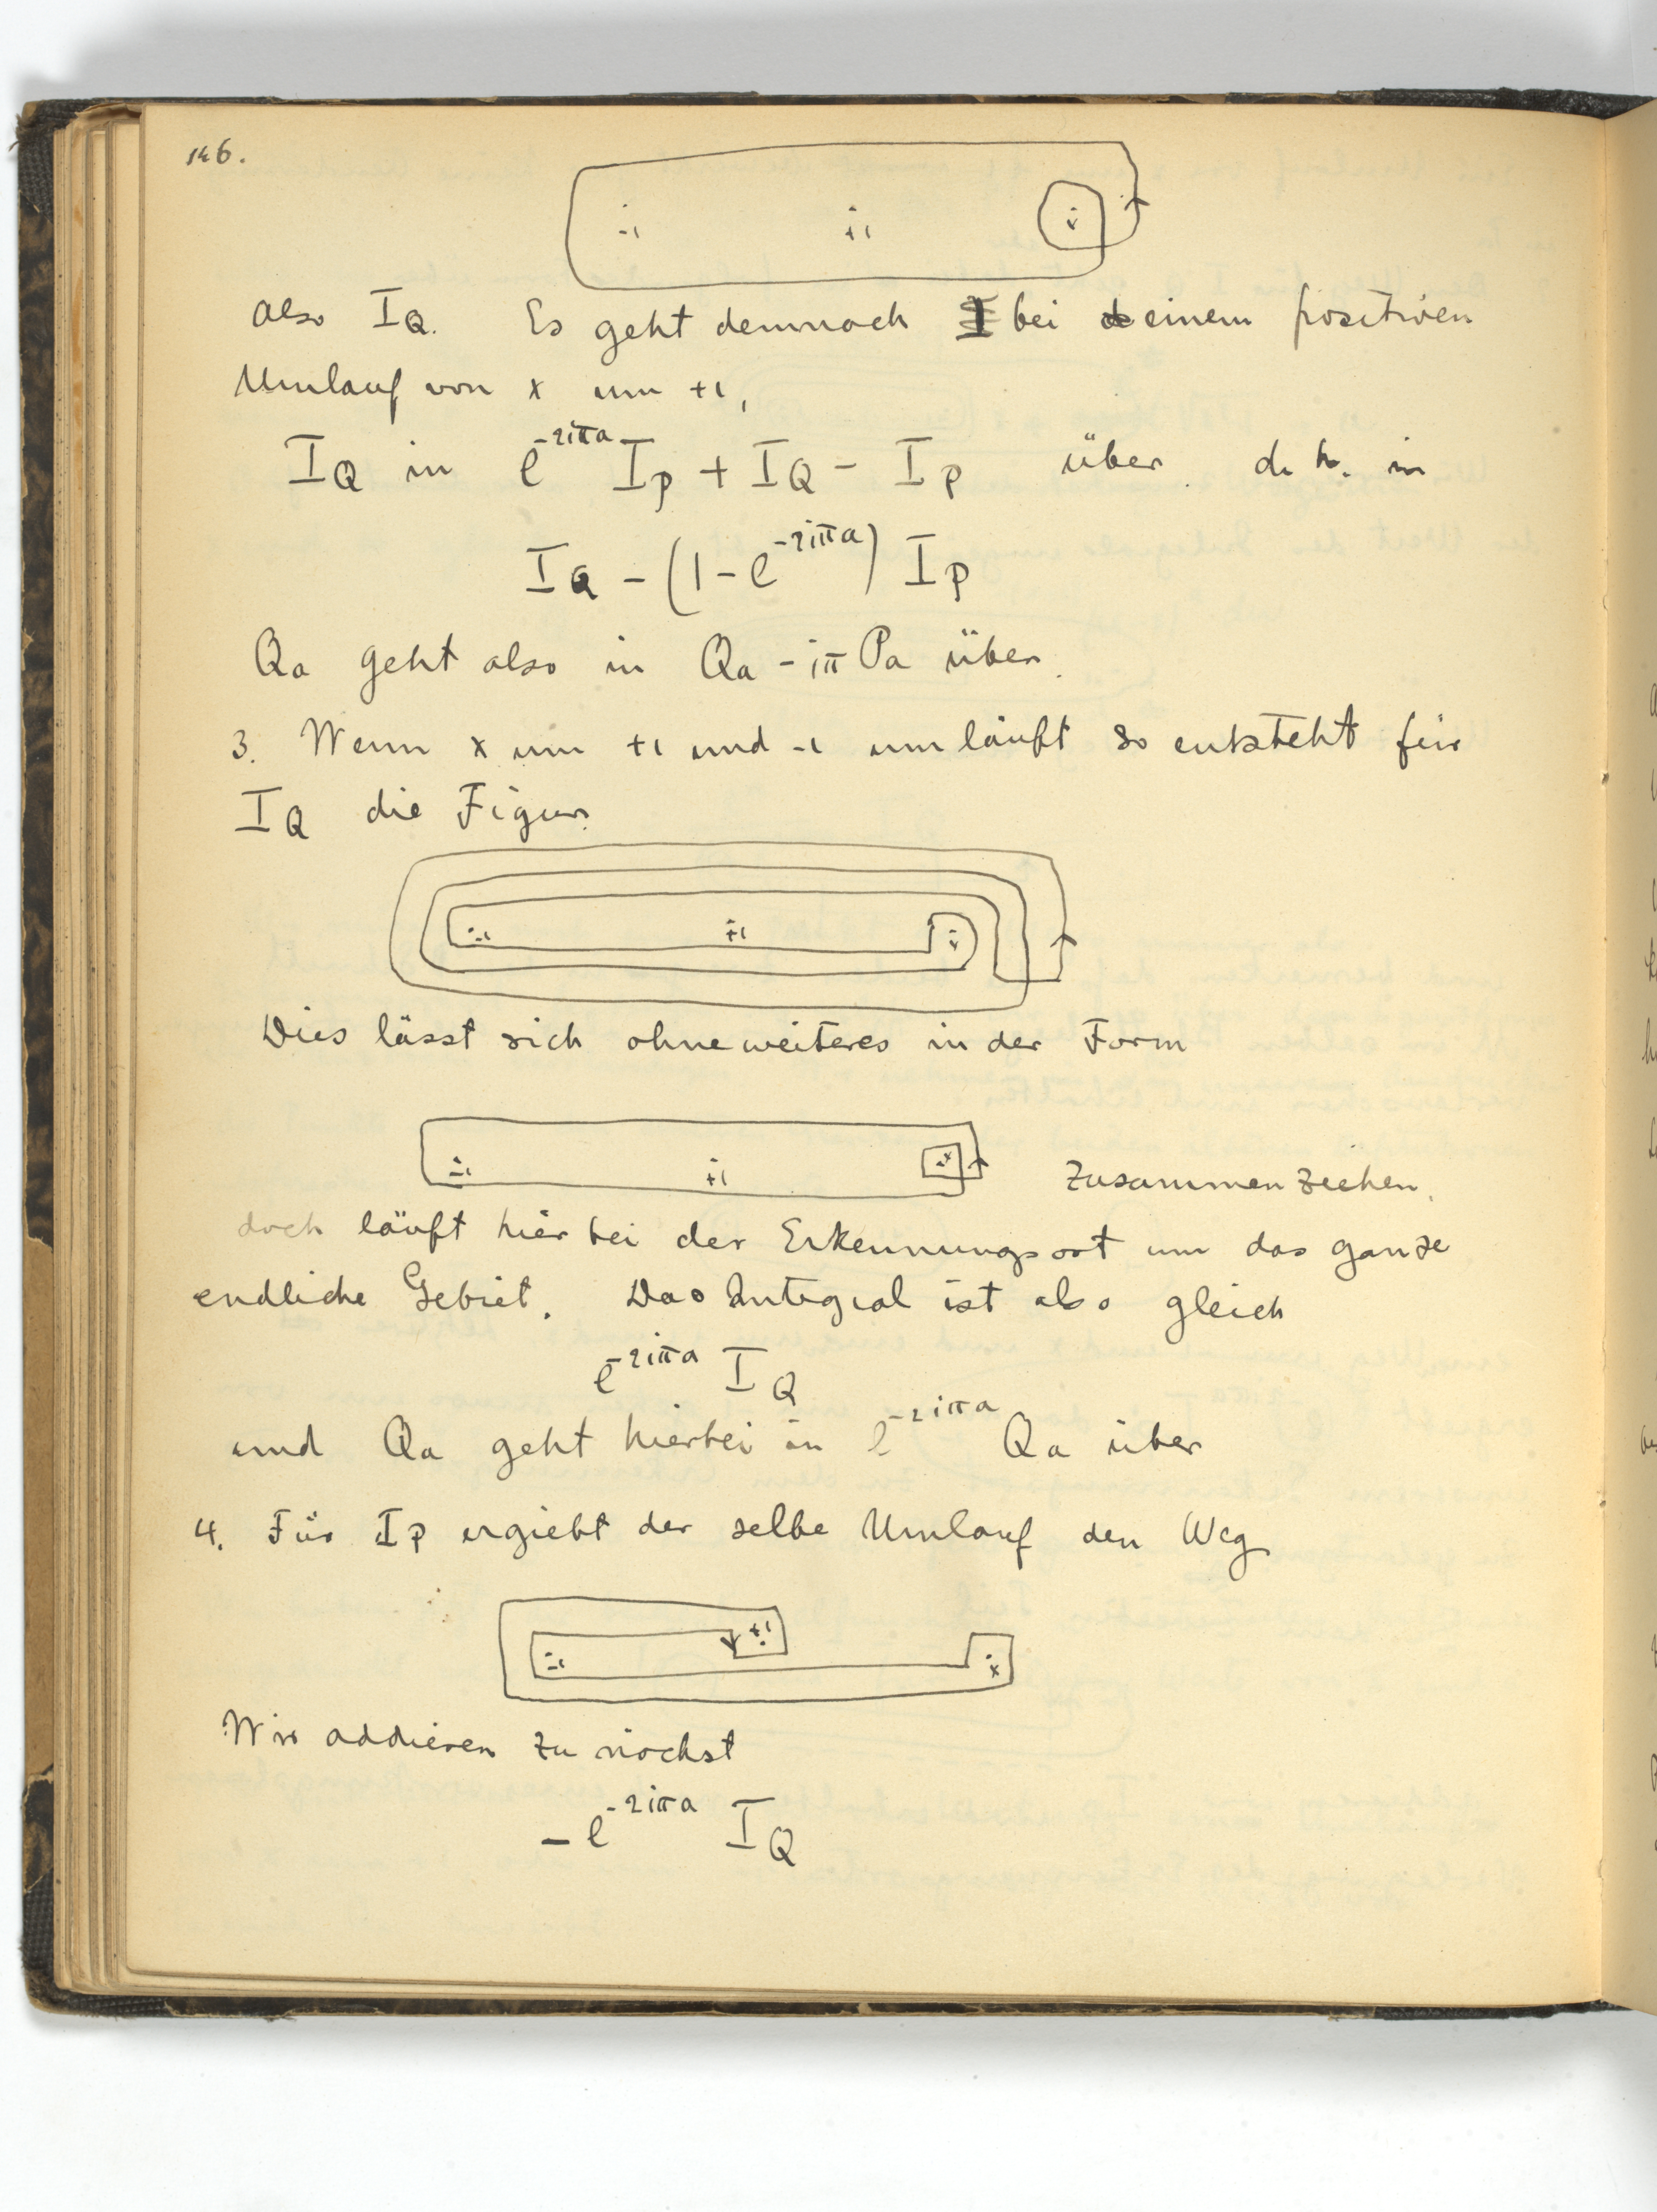 146.
-1 +1 x
Also I_Q. Es geht demnach bei einem positiven
Umlauf von x um +1,
I_Q in e^{-2iπa} I_P + I_Q - I_P über. d. h. in
I_Q - (1 - e^{-2iπa}) I_P
Q_a geht also in Q_a - iπ P_a über.
3. Wenn x um +1 und -1 umläuft so entsteht für
I_Q die Figur.
-1 +1 x
Dies lässt sich ohneweiteres in der Form
-1 +1 x zusammenziehen,
doch läuft hierbei der Erkennungsort um das ganze
endliche Gebiet. Das Integral ist also gleich
e^{-2iπa} I_Q
und Q_a geht hierbei in e^{-2iπa} Q_a über
4. Für I_P ergiebt der selbe Umlauf den Weg
-1 +1 x
Wir addieren zunächst
-e^{-2iπa} I_Q